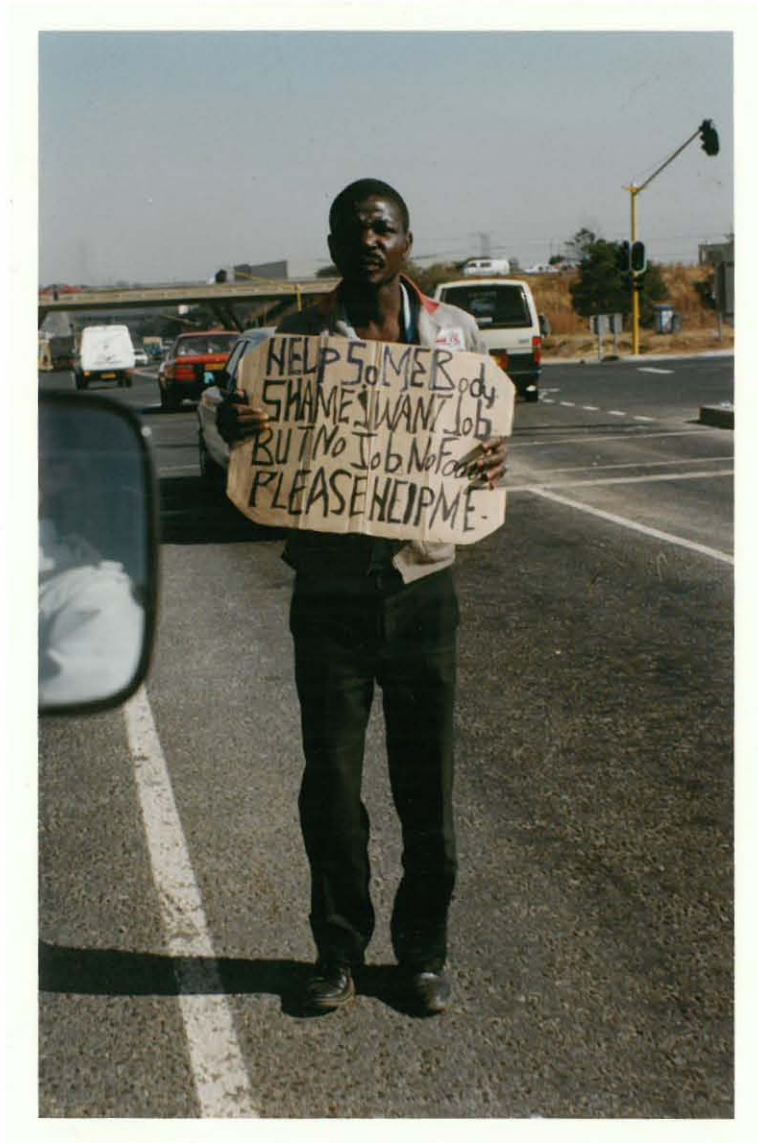 HELP SoMEBody
SHAME I WANT Job
BUT No Job. No Food
PLEASE HElP ME.